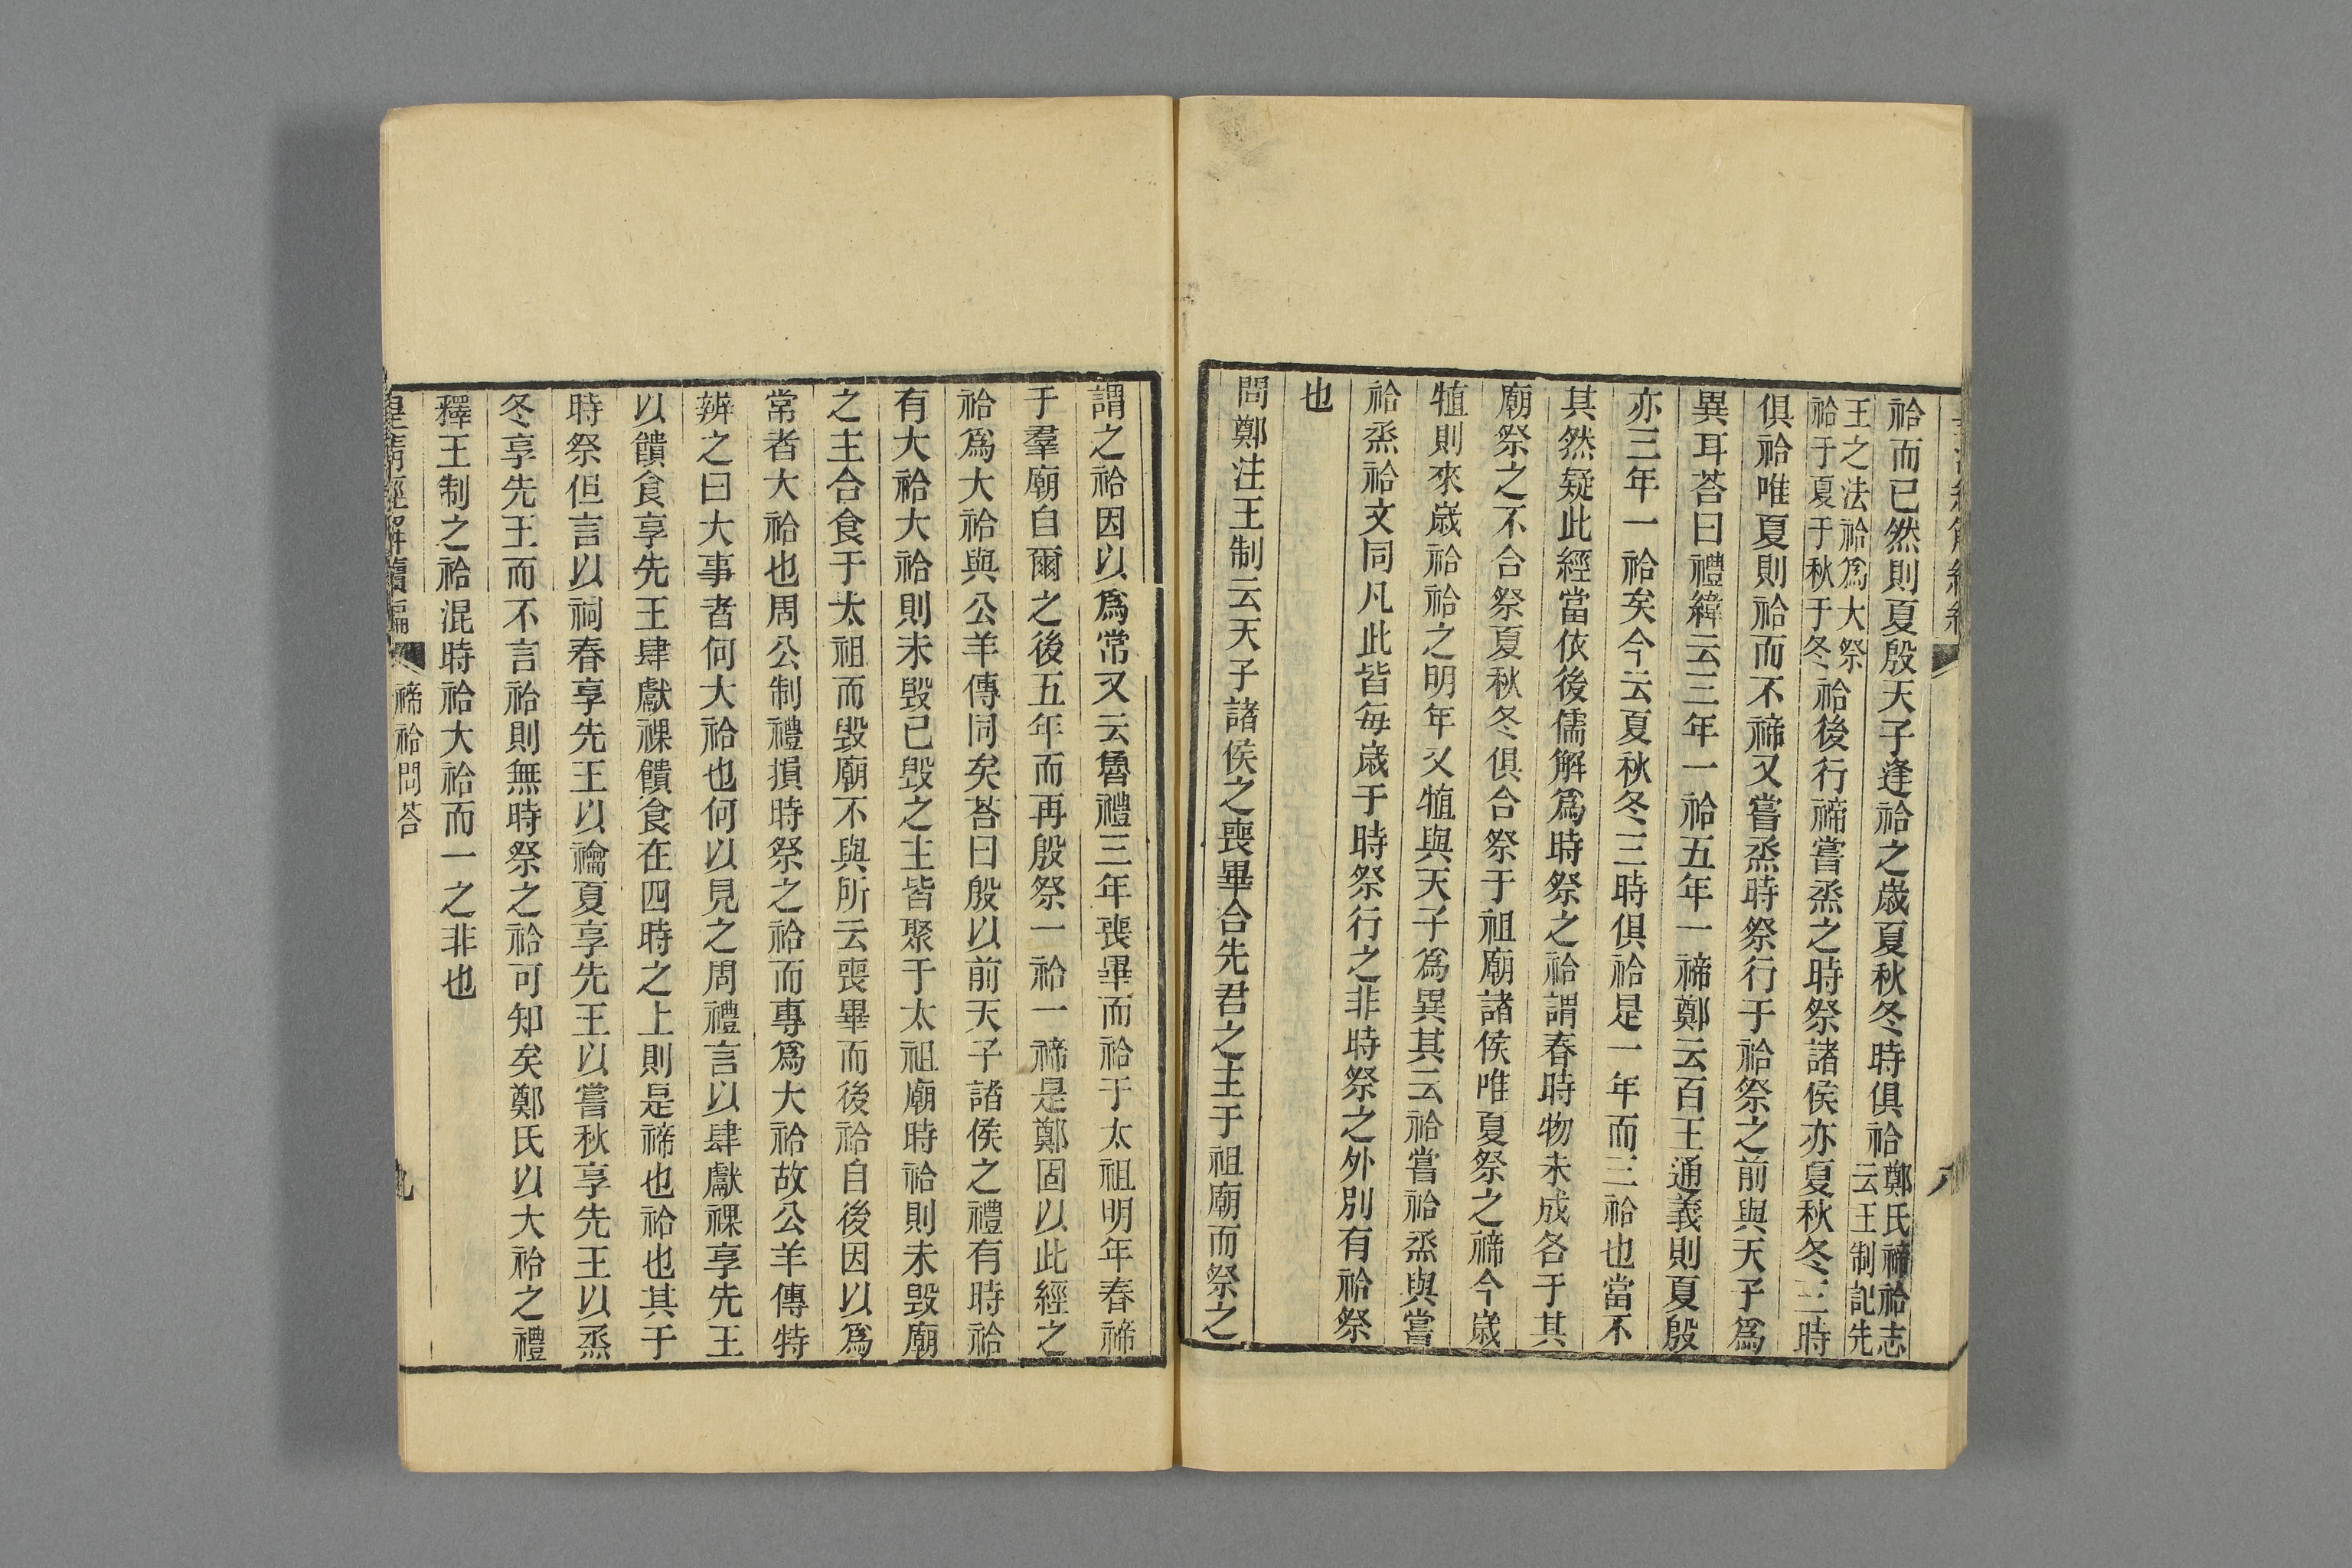 祫而已然則夏殷天子逢祫之歲夏秋冬時俱祫鄭氏禘祫志云王制記先
王之法祫爲大祭祫于夏于秋于冬祫後行禘嘗烝之時祭諸侯亦夏秋冬三時
俱祫唯夏則祫而不禘又嘗烝時祭行于祫祭之前與天子爲
異耳荅曰禮緯云三年一祫五年一禘鄭云百王通義則夏殷
亦三年一祫矣今云夏秋冬三時俱祫是一年而三祫也當不
其然疑此經當依後儒解爲時祭之祫謂春時物未成各于其
廟祭之不合祭夏秋冬俱合祭于祖廟諸侯唯夏祭之禘今歲
犆則來歲祫祫之明年又犆與天子爲異其云祫嘗祫烝與嘗
祫烝祫文同凡此皆每歲于時祭行之非時祭之外別有祫祭
也
問鄭注王制云天子諸侯之喪畢合先君之主于祖廟而祭之
謂之祫因以爲常又云魯禮三年喪畢而祫于太祖明年春禘
于羣廟自爾之後五年而再殷祭一祫一禘是鄭固以此經之
祫爲大祫與公羊傳同矣荅曰殷以前天子諸侯之禮有時祫
有大祫大祫則未毀已毀之主皆聚于太祖廟時祫則未毀廟
之主合食于太祖而毀廟不與所云喪畢而後祫自後因以爲
常者大祫也周公制禮損時祭之祫而專爲大祫故公羊傳特
辨之曰大事者何大祫也何以見之周禮言以肆獻祼享先王
以饋食享先王肆獻祼饋食在四時之上則是禘也祫也其于
時祭但言以祠春享先王以禴夏享先王以嘗秋享先王以烝
冬享先王而不言祫則無時祭之祫可知矣鄭氏以大祫之禮
釋王制之祫混時祫大祫而一之非也
皇淸經解續編 禘祫問荅 九